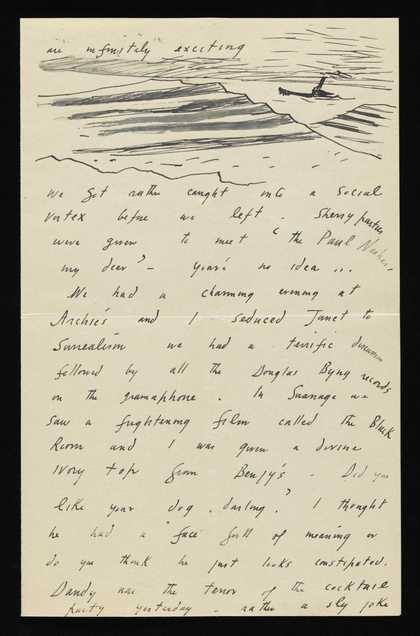 are infinitely exciting
We got rather caught into a social
vortex before we left. Sherry parties
were given to meet ‘the Paul Nashes
my dear’ – you've no idea ...
We had a charming evening at
Archie's and I seduced Janet to
Surrealism we had a terrific discussion
followed by all the Douglas Byng records
on the gramaphone. In Swanage we
saw a frightening film called the Black
Room and I was given a divine
ivory top from Benjy's - Did you
like your dog, darling? I thought
he had a "face full of meaning or
do you think he just looks constipated.
Dandy was the terror of the cocktail
party yesterday - rather a sly joke